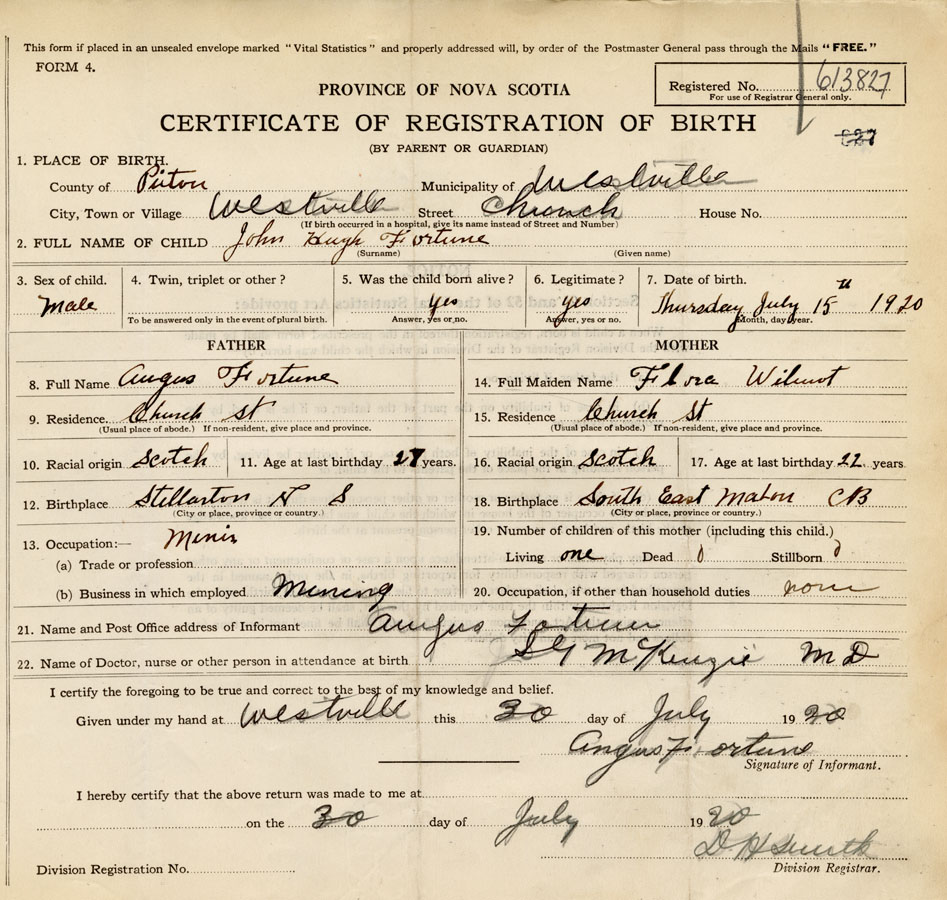 This form if placed in an unsealed envelope marked "Vital Statistics" and properly addressed will, by order of the Postmaster General pass through the Mails "FREE."
FORM 4.
Registered No. 613827
For use of Registrar General only.
PROVINCE OF NOVA SCOTIA
CERTIFICATE OF REGISTRATION OF BIRTH
(BY PARENT OR GUARDIAN)
827
1. PLACE OF BIRTH.
County of Picton Municipality of Westville
City, Town or Village Westville Street Church House No.
(If birth occurred in a hospital, give its name instead of Street and Number)
2. FULL NAME OF CHILD John Hugh Fortune
(Surname) (Given name)
3. Sex of child. 4. Twin, triplet or other? 5. Was the child born alive? 6. Legitimate? 7. Date of birth.
Male yes yes Thursday July 15th 1920
To be answered only in the event of plural birth. Answer, yes or no. Answer, yes or no. Month, day, year.
FATHER MOTHER
8. Full Name Angus Fortune 14. Full Maiden Name Flora Wilmot
9. Residence. Church St 15. Residence Church St
(Usual place of abode.) If non-resident, give place and province. (Usual place of abode.) If non-resident, give place and province.
10. Racial origin Scotch 11. Age at last birthday 27 years. 16. Racial origin Scotch 17. Age at last birthday 22 years
12. Birthplace Stellarton N S 18. Birthplace South East Mabou CB
(City or place, province or country.) (City or place, province or country.)
13. Occupation:— Minin 19. Number of children of this mother (including this child.)
(a) Trade or profession Living one Dead 0 Stillborn 0
(b) Business in which employed Mining 20. Occupation, if other than household duties none
21. Name and Post Office address of Informant Angus Fortune
22. Name of Doctor, nurse or other person in attendance at birth McKenzie M D
I certify the foregoing to be true and correct to the best of my knowledge and belief.
Given under my hand at Westville this 30 day of July 1920
Angus Fortune
Signature of Informant.
I hereby certify that the above return was made to me at
on the 30 day of July 1920
D H Smith
Division Registration No. Division Registrar.